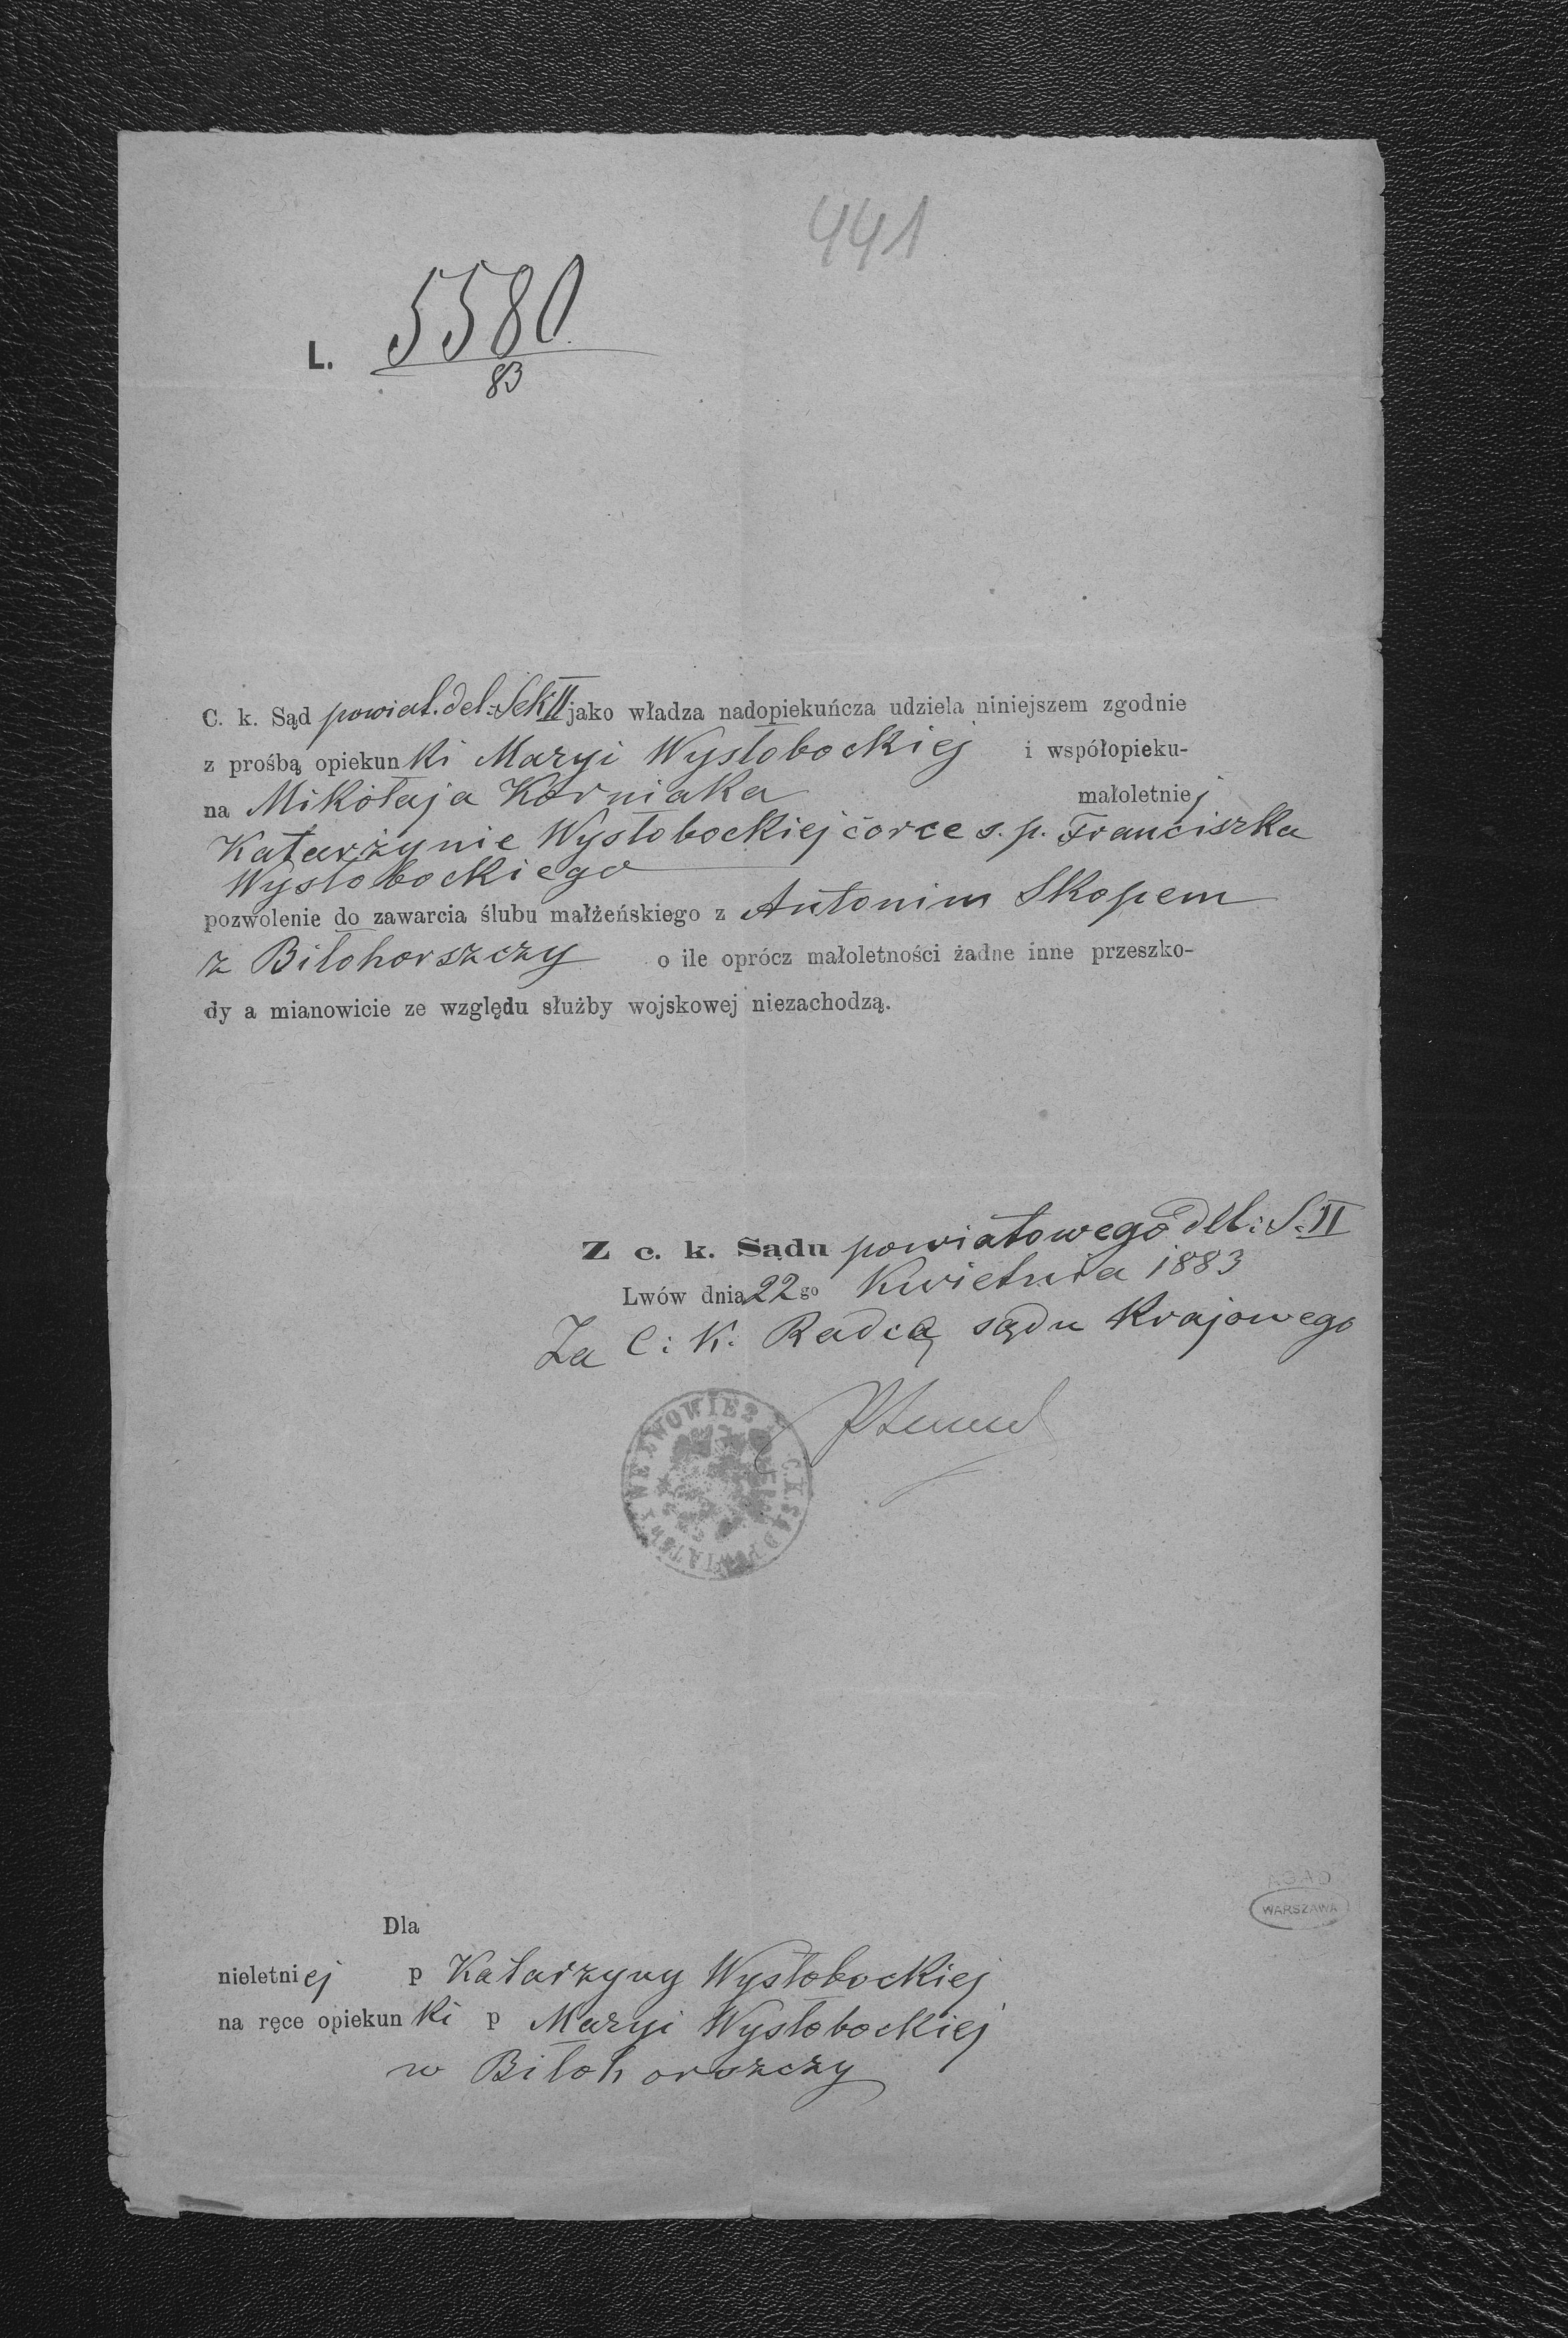 441
L. 5580
83
C. k. Sąd powiat. del: Sek II jako władza nadopiekuńcza udziela niniejszem zgodnie
z prośbą opiekunki Maryi Wysłobockiej i współopieku-
na Mikołaja Korniaka małoletniej
Katarzynie Wysłobockiej córce s. p. Franciszka
Wysłobockiego
pozwolenie do zawarcia ślubu małżeńskiego z Antonim Skopem
z Biłohorszczy o ile oprócz małoletności żadne inne przeszko-
dy a mianowicie ze względu służby wojskowej niezachodzą.
Z c. k. Sądu powiatowego del: S. II
Lwów dnia 22go Kwietnia 1883
Za C: K. Radcą sądu Krajowego
C. K. SĄD POWIATOWY WE LWOWIE
AGAD
WARSZAWA
Dla
nieletniej p Katarzyny Wysłobockiej
na ręce opiekunki p Maryi Wysłobockiej
w Biłohorszczy